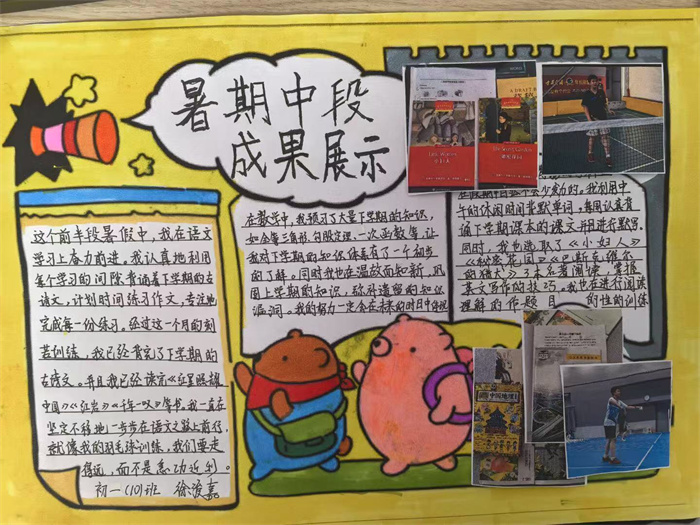 暑期中段
成果展示
这个前半段暑假中,我在语文
学习上奋力前进。我认真地利用
每个学习的间隙背诵着下学期的古
诗文,计划时间练习作文,专注地
完成每一份练习。经过这一个月的刻
苦训练,我已经背完了下学期的
古诗文。并且我已经读完《红星照耀
中国》《红岩》《千年一叹》等书。我一直在
坚定不移地一步步在语文之路上前行,
就像我的羽毛球训练,我们要走
得远,而不是急功近利。
初一(10)班 徐浚嘉
在数学中,我预习了大量下学期的知识,
如全等三角形、勾股定理、一次函数等,让
我对下学期的知识体系有了一个初步
的了解。同时我也在温故而知新,巩
固上学期的知识,弥补遗留的知识
漏洞。我的努力一定会在未来的时日中
在假期中自然不会少发力的。我利用中
午的休闲时间默单词,每周认真背
诵下学期课本的课文并且进行默写。
同时,我也选取了《小妇人》
《秘密花园》《巴斯克维尔
的猎犬》3本名著阅读,掌握
英文写作的技巧。我也在进行阅读
理解的作题目 的性的训练
Little Women
小妇人
The Secret Garden
秘密花园
中国地理